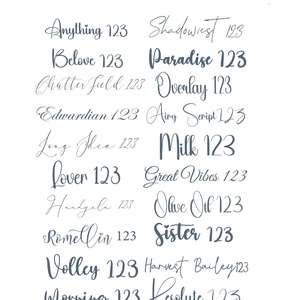 Anything 123 Shadowiest 123
Belove 123 Paradise 123
Chatterfield 123 Overlay 123
Edwardian 123 Airy Script 123
Long Shea 123 Milk 123
Lover 123 Great Vibes 123
123 Olive Oil 123
123 Sister 123
Volley 123 Harvest Bailey 123
Morning 123 Resolute 123